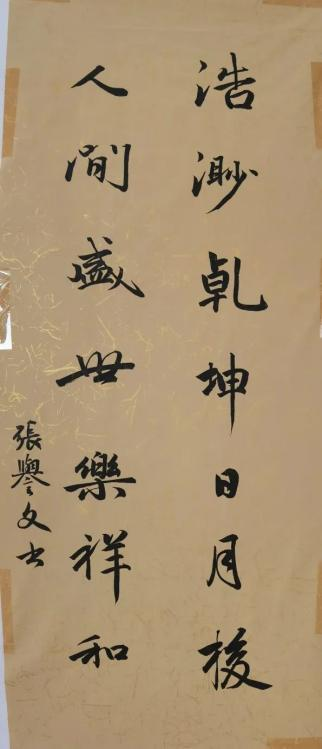 浩渺乾坤日月梭
人間盛世樂祥和
張譽文書